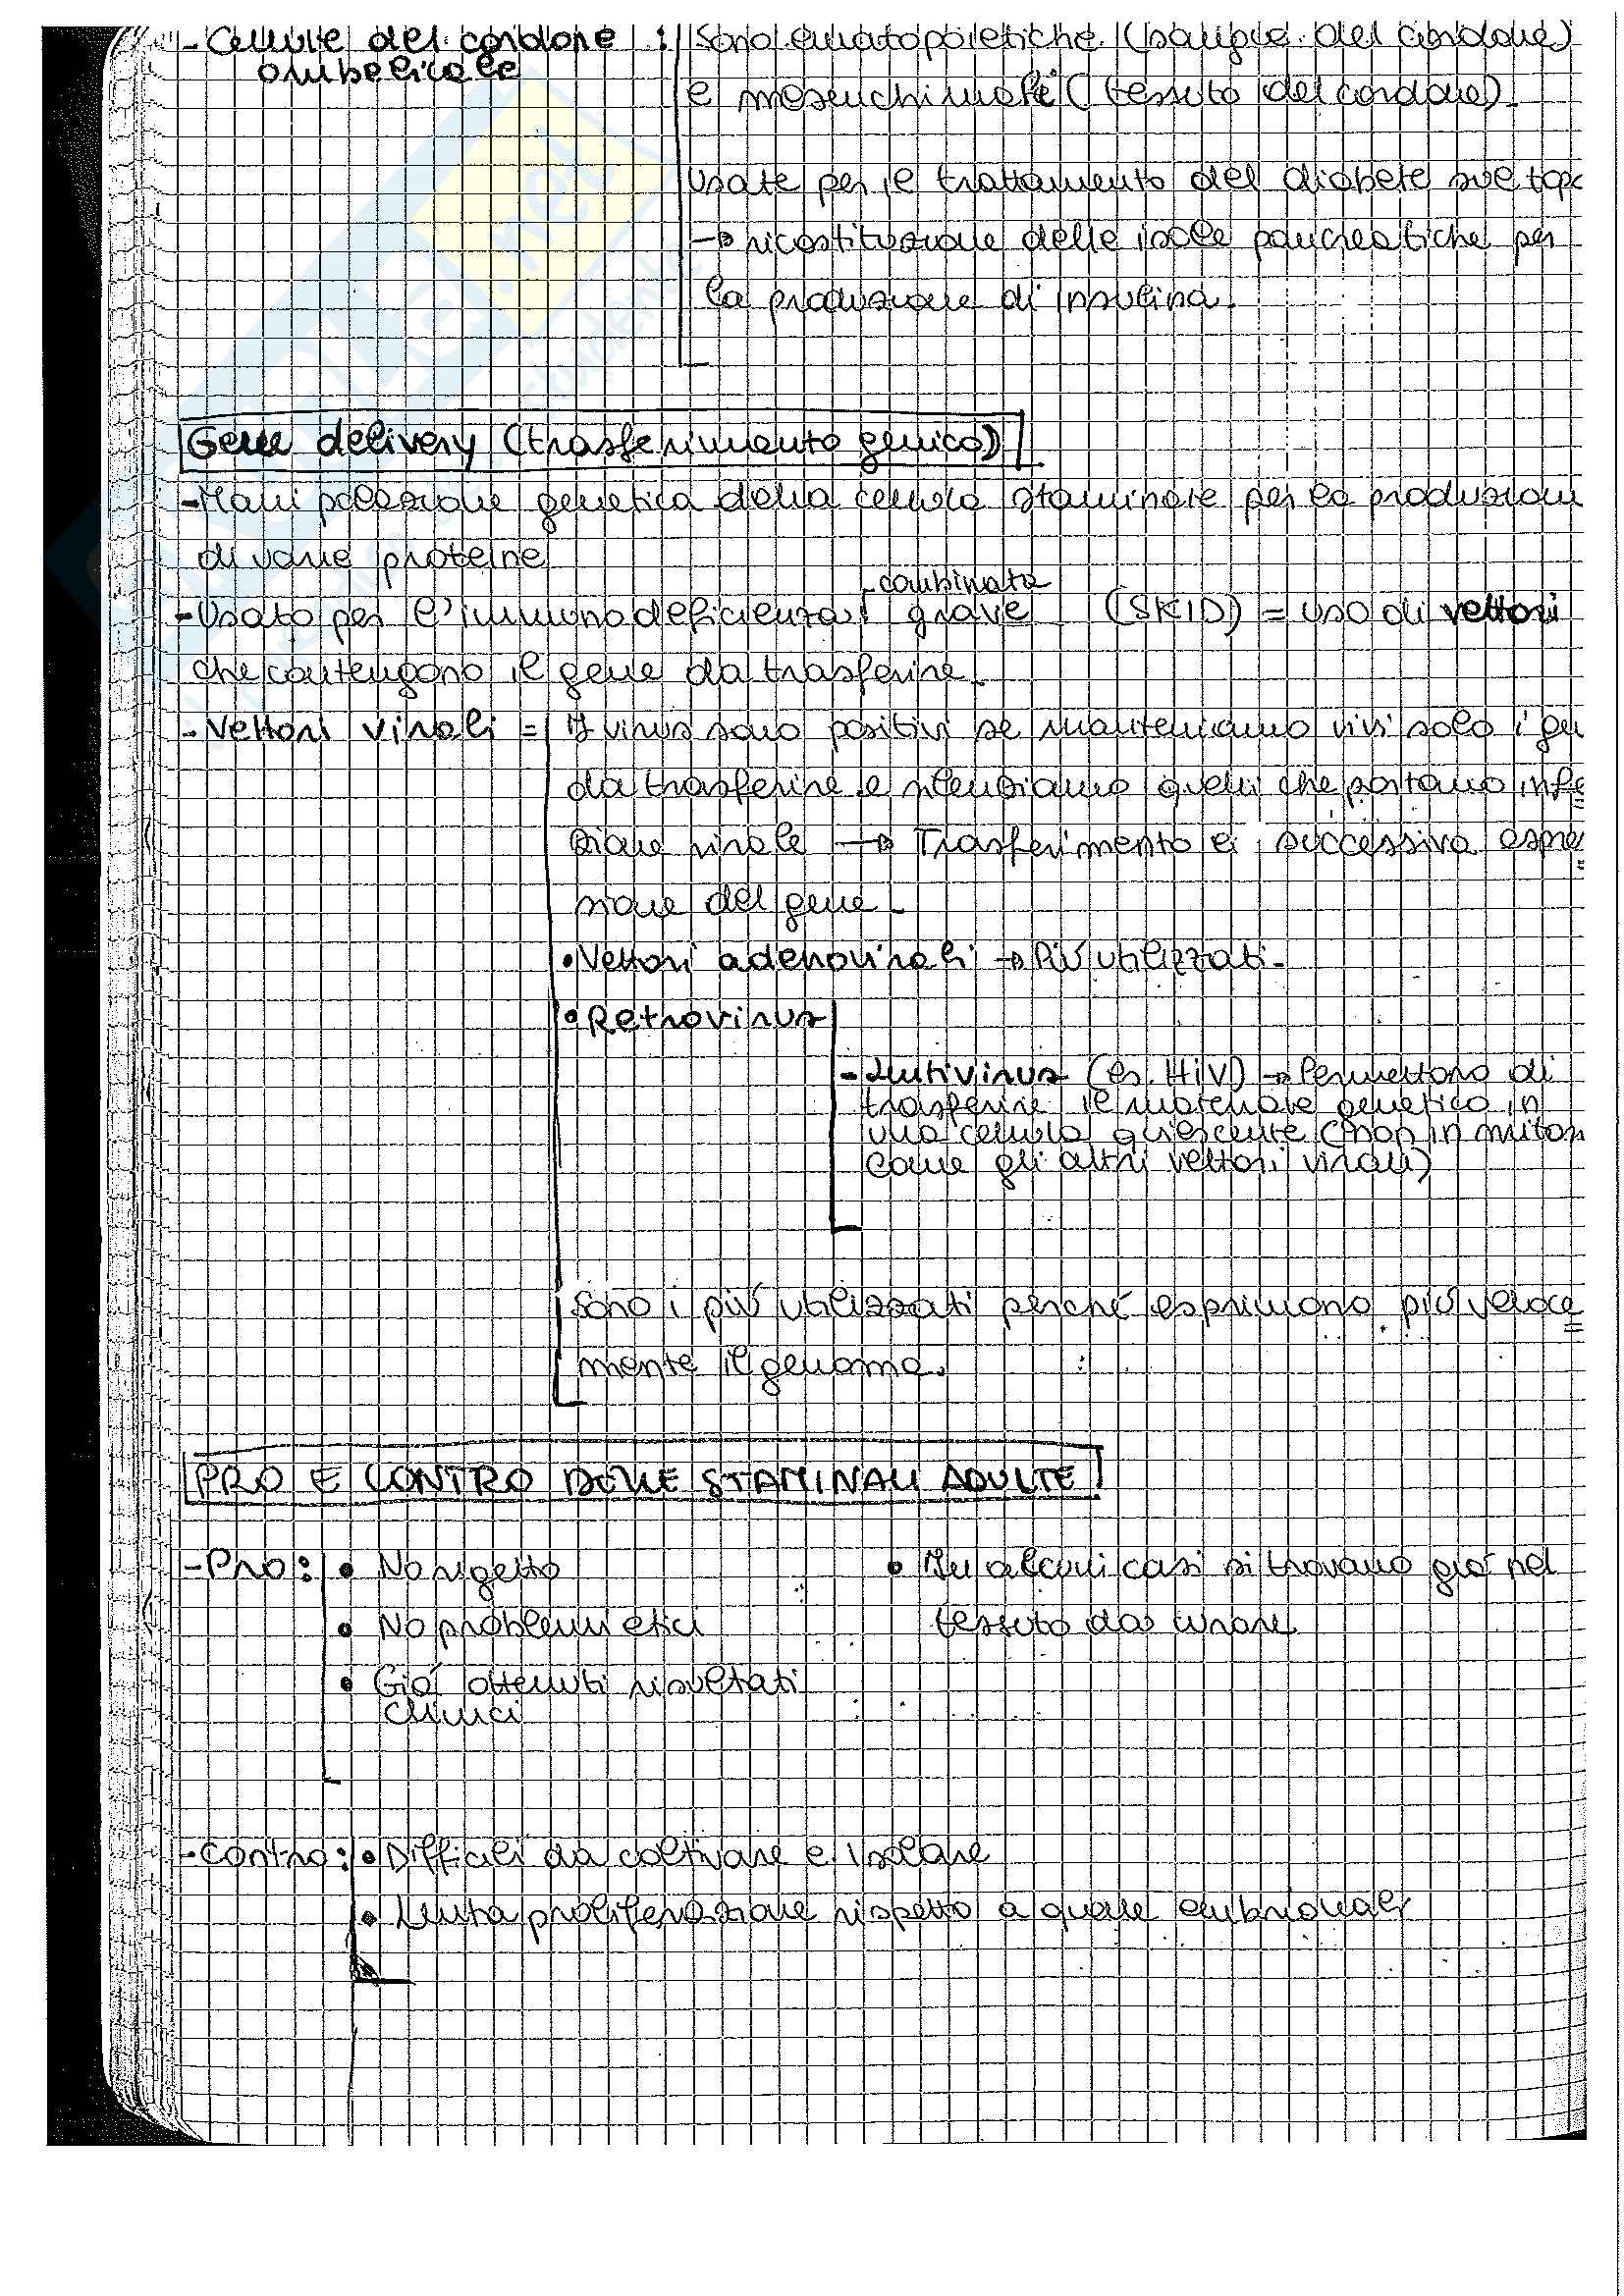 - Cellule del cordone : Sono ematopoietiche (sangue del cordone)
ombelicale
e mesenchimali (tessuto del cordone).
Usate per il trattamento del diabete sul topo
→ ricostituzione delle isole pancreatiche per
la produzione di insulina.
Gene delivery (trasferimento genico)
- Manipolazione genetica della cellula staminale per la produzion
di varie proteine
combinata
- Usato per l'immunodeficienza grave (SKID) = uso di vettori
che contengono il gene da trasferire.
- Vettori virali = I virus sono positivi se manteniamo vivi solo i ge
da trasferire e silenziamo quelli che portano infe
zione virale → Trasferimento e successiva espre
sione del gene.
• Vettori adenovirali → Più utilizzati.
• Retrovirus
- Lentivirus (es. HiV) → Permettono di
trasferire il materiale genetico in
una cellula quiescente (non in mitosi
come gli altri vettori virali)
Sono i più utilizzati perché esprimono più veloce
mente il genoma.
PRO E CONTRO DELLE STAMINALI ADULTE
- Pro: • No rigetto • In alcuni casi si trovano già nel
• No problemi etici tessuto da curare
• Già ottenuti risultati
clinici
- Contro: • Difficili da coltivare e isolare
• Lenta proliferazione rispetto a quelle embrionali